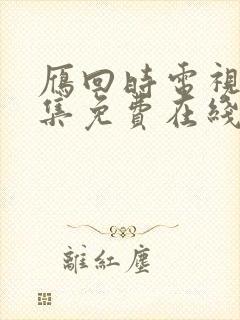 雁回時電視
集免費在綫
離紅塵